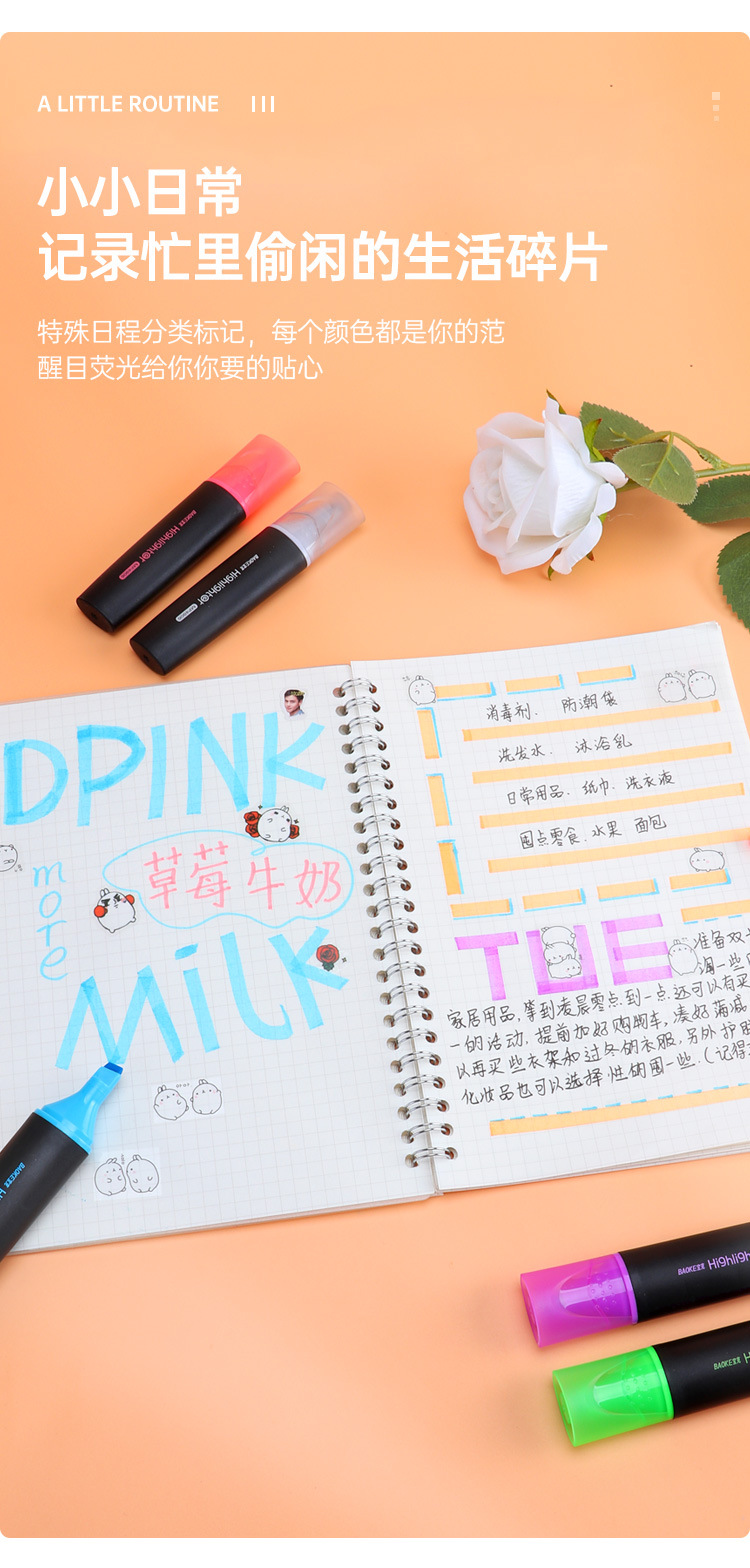 A LITTLE ROUTINE
小小日常
记录忙里偷闲的生活碎片
特殊日程分类标记，每个颜色都是你的范
醒目荧光给你你要的贴心
BAOKE宝克 Highlighter
BAOKE宝克 Highlighter
DPINK
more
草莓牛奶
MiLK
消毒剂． 防潮袋
洗发水． 沐浴乳
日常用品．纸巾．洗衣液
囤点零食．水果 面包
TUE
准备双十
淘一些
家居用品，等到凌晨零点到一点还可以有买
一的活动，提前加好购物车，凑好满减
以再买些衣架和过冬的衣服，另外护肤
化妆品也可以选择性的囤一些．（记得
BAOKE宝克 Highligh
BAOKE宝克 H
BAOKE宝克 Hi